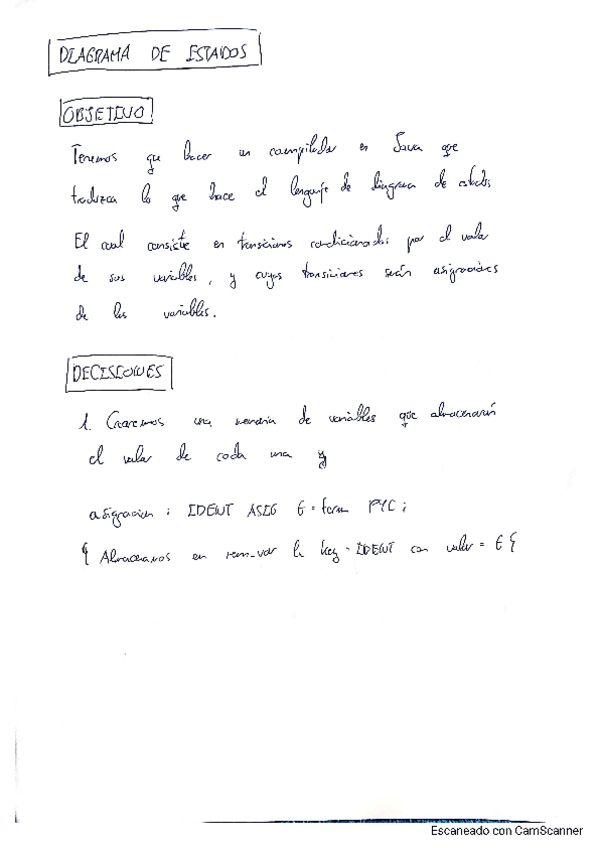 DIAGRAMA DE ESTADOS
OBJETIVO
Tenemos que hacer un compilador en Java que
traduzca lo que hace el lenguaje de diagrama de estados
El cual consiste en transiciones condicionadas por el valor
de sus variables, y cuyas transiciones serán asignaciones
de las variables.
DECISIONES
1. Crearemos una memoria de variables que almacenarán
el valor de cada una y
asignacion : IDENT ASIG E=term PYC ;
{ Almacenamos en mem_var la key = IDENT con valor = E }
Escaneado con CamScanner